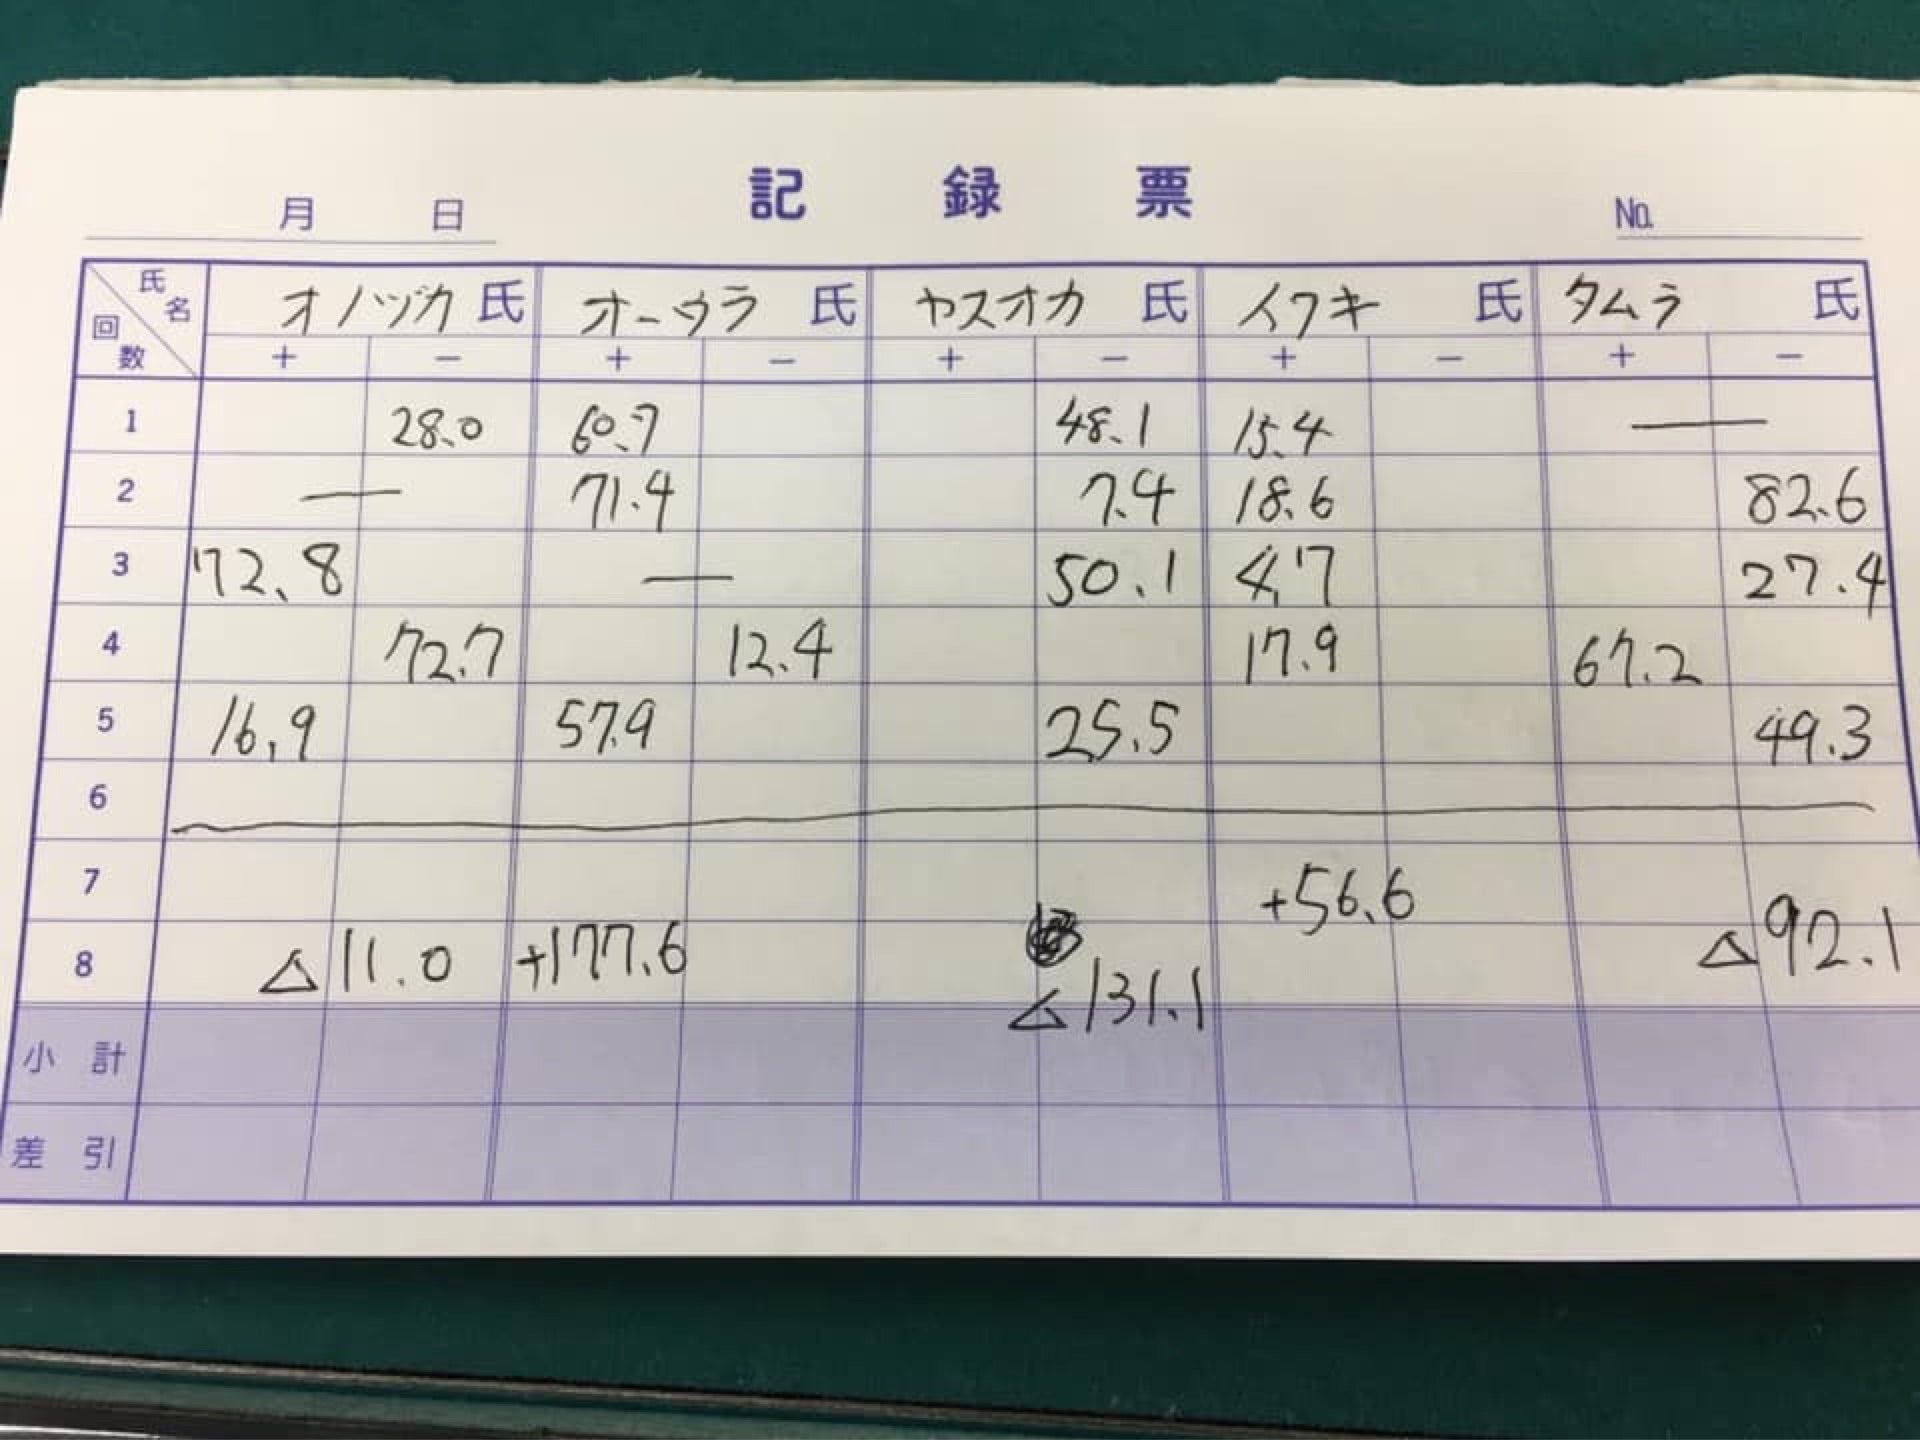 記 録 票
月 日 No.
氏名 回数 オノヅカ 氏 オーウラ 氏 ヤスオカ 氏 イワキ 氏 タムラ 氏
+ − + − + − + − + −
1 28.0 60.7 48.1 15.4 —
2 — 71.4 7.4 18.6 82.6
3 72.8 — 50.1 4.7 27.4
4 72.7 12.4 17.9 67.2
5 16.9 57.9 25.5 49.3
6
7 +56.6
8 △11.0 +177.6 △131.1 △92.1
小 計
差 引